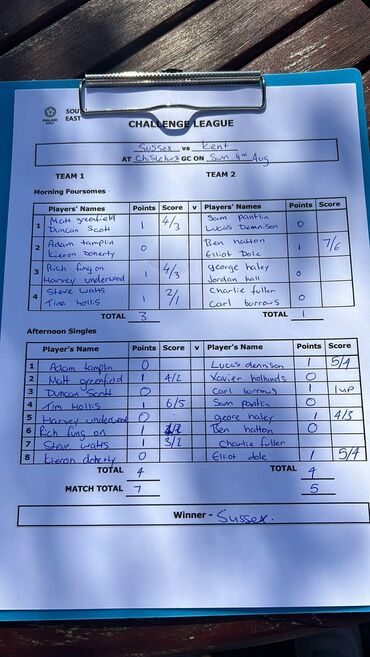 ENGLAND GOLF
SOUTH EAST
CHALLENGE LEAGUE
Sussex vs Kent
AT Chislehurst GC ON Sun 4th Aug
TEAM 1 TEAM 2
Morning Foursomes
Players' Names Points Score v Players' Names Points Score
1 Matt greenfield Duncan Scott 1 4/3 Sam pantlin Lucas Dennison 0
2 Adam tamplin Kieron Doherty 0 Ben hatton Elliot Dole 1 7/6
3 Rich fung on Harvey underwood 1 4/3 george haley Jordan hall 0
4 Steve Watts Tim hollis 1 2/1 Charlie fuller Carl burrows 0
TOTAL 3 TOTAL 1
Afternoon Singles
Player's Name Points Score v Player's Name Points Score
1 Adam tamplin 0 Lucas dennison 1 5/4
2 Matt greenfeild 1 4/2 Xavier hollands 0
3 Duncan Scott 0 Carl burrows 1 1up
4 Tim Hollis 1 6/5 Sam pantlin 0
5 Harvey underwood 0 geore haley 1 4/3
6 Rich fung on 1 Ben hatton 0
7 Steve watts 1 3/2 Charlie fuller
8 Kieron doherty 0 Elliot dole 1 5/4
TOTAL 4 TOTAL 4
MATCH TOTAL 7 5
Winner - Sussex.